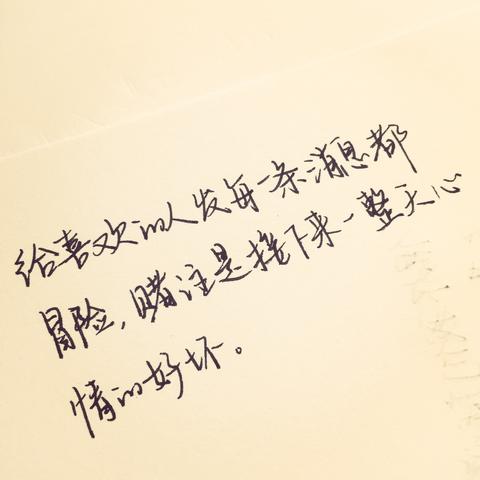 给喜欢的人发每一条消息都
冒险,赌注是接下来一整天心
情的好坏。